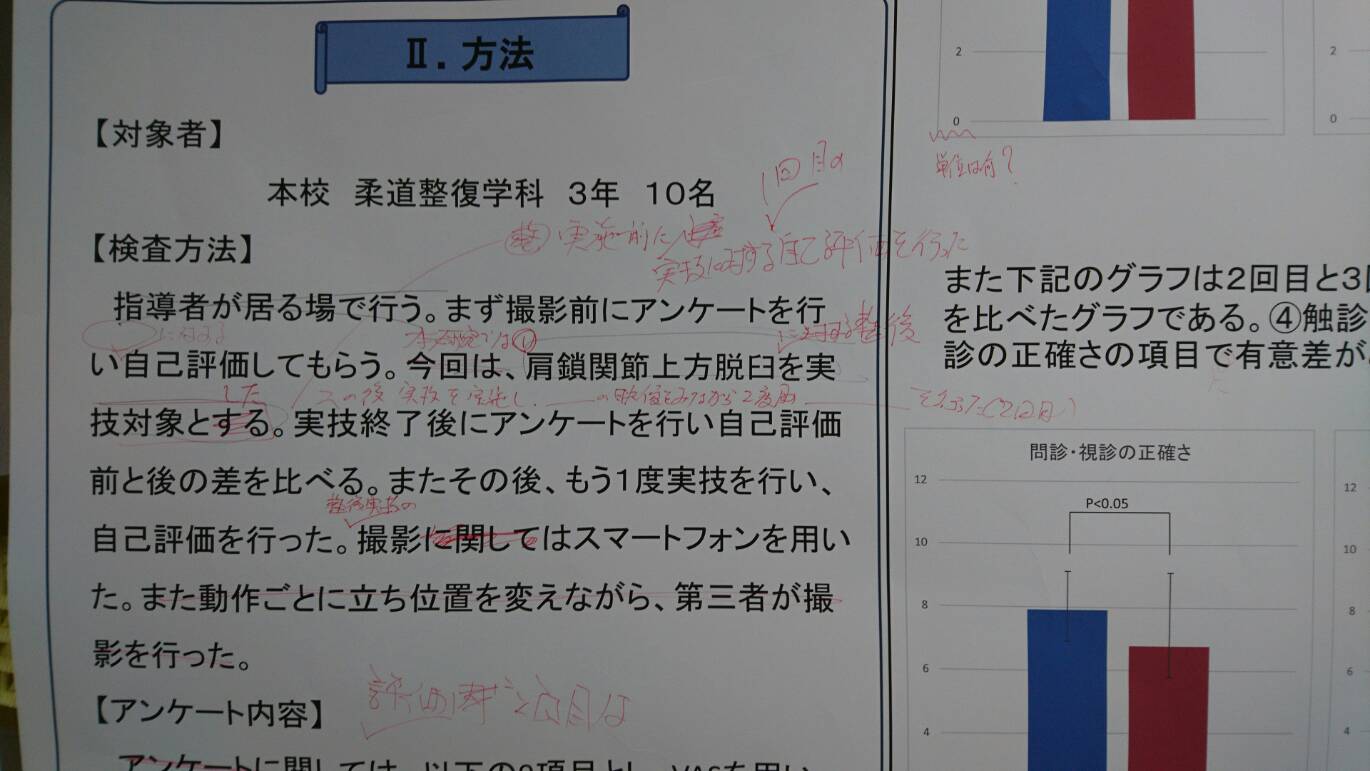 Ⅱ．方法
【対象者】
本校　柔道整復学科　３年　１０名
1回目の
実施前に
実技に対する自己評価を行った
【検査方法】
指導者が居る場で行う。まず撮影前にアンケートを行
に対する
本研究では①
後
い自己評価してもらう。今回は、肩鎖関節上方脱臼を実
した
その後 実技を実施し
技対象とする。実技終了後にアンケートを行い自己評価
前と後の差を比べる。またその後、もう１度実技を行い、
自己評価を行った。撮影に関してはスマートフォンを用い
た。また動作ごとに立ち位置を変えながら、第三者が撮
影を行った。
【アンケート内容】
アンケートに関しては、以下の9項目とし、VASを用い
2
0
単位は有？
2
0
また下記のグラフは２回目と３回
を比べたグラフである。④触診
診の正確さの項目で有意差が
問診・視診の正確さ
12
P<0.05
10
8
6
4
12
10
8
6
4